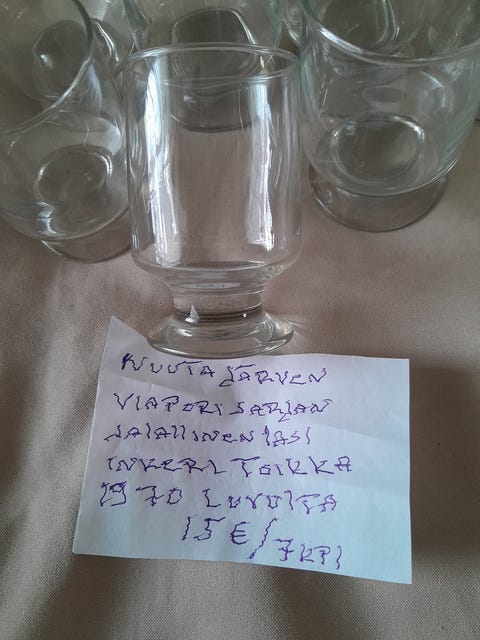 NUUTAJÄRVEN
VIAPORI SARJAN
JALALLINEN LASI
INKERI TOIKKA
1970 LUVULTA
15 € / 7 KPL